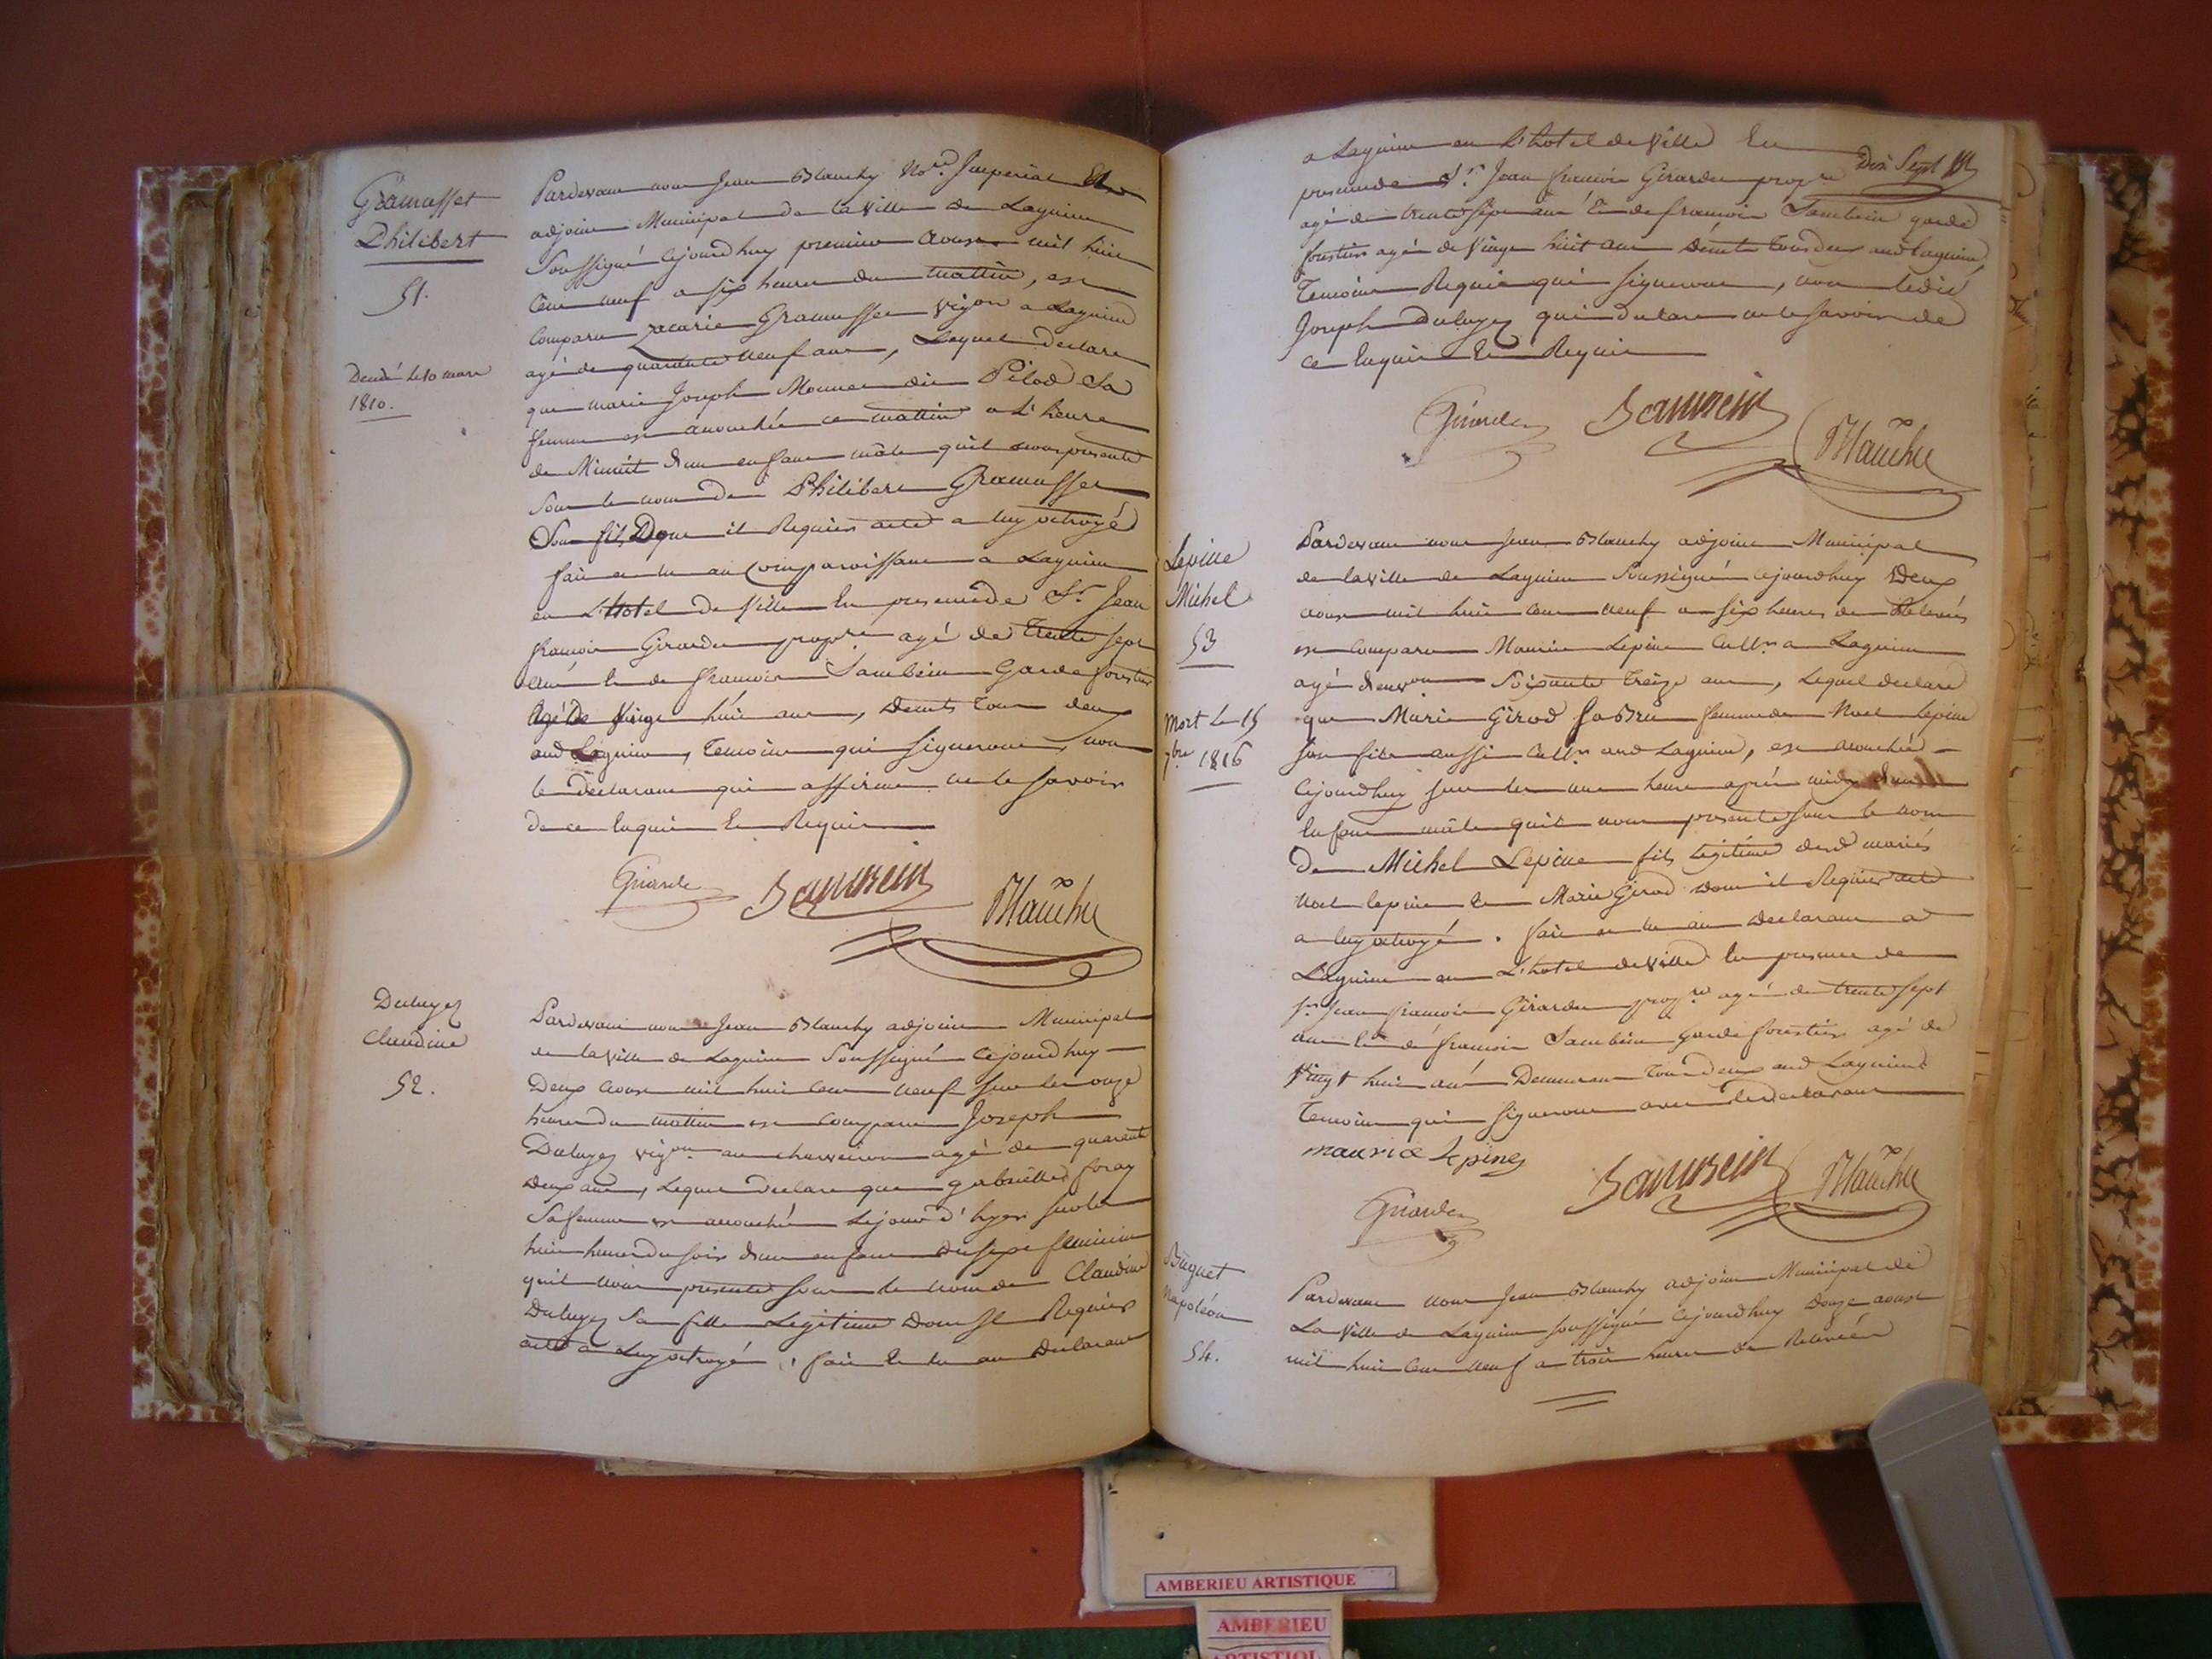 Gramusset
Philibert
51.
Décédé le 10 mars
1810.
Pardevant nous Jean Blanchy No.re Imperial Et
adjoint Municipal de la Ville de Lagnieu
Soussigné Cejourdhuy premier Aoust mil huit
Cent neuf a six heures du mattin, est
Comparu Zacarie Gramusset vigon a Lagnieu
agé de quarante neuf ans, Lequel declare
que marie Joseph Monnet dit Pélod Sa
femme est acouchée ce mattin a L'heure
de Minuit d'un enfant mâle quil nous presente
Sous le nom de Philibert Gramusset
Son fils, Dque il Requiert acte a luy octroyé
fait et lu au Comparoissant a Lagnieu
en L'hotel de Ville En presence de Sr. Jean
francois Girardet propre agé de trente sept
ans Et de francois Sambein Garde forestier
Agé De Vingt huit ans, Demts Tous deux
aud Lagnieu, Temoins qui signeront, non
le declarant qui affirme ne le savoir
de ce Enquis Et Requis
Girardet Sambein Blanchy
Duluyez
Claudine
52.
Pardevant nous Jean Blanchy adjoint Municipal
de la Ville de Lagnieu Soussigné Cejourdhuy
Deux Aoust mil huit Cent neuf sur les onze
heures du mattin est Comparu Joseph
Duluyez vigon au charveiron agé de quarante
Deux ans, Lequel declare que gabrielle foray
Sa femme est acouchée Lejour d'hyer sur les
huit heures du soir d'un enfant du sexe feminin
quil nous presente sous le nom de Claudine
Duluyez Sa fille Legitime Dont Il Requiert
acte a Luy octroyé, fait Et lu au Declarant
Dix Sept
a Lagnieu en L'hotel de Ville En
presence de Sr. Jean francois Girardet propre
agé de trente sept ans Et de francois Sambein garde
forestier agé de Vingt huit ans Demts Tous deux aud Lagnieu,
Temoins Requis qui signeront, non ledit
Joseph Duluyez qui declare ne le savoir de
ce Enquis Et Requis
Girardet Sambein Blanchy
Lepine
Michel
53
Mort Le 15
7bre 1816
Pardevant nous Jean Blanchy adjoint Municipal
de la Ville de Lagnieu Soussigné Cejourdhuy Deux
aoust mil huit cent neuf a six heures de Relevés
est Comparu Maurice Lepine Cultr a Lagnieu
agé denvon Soixante Treize ans, Lequel declare
que Marie Girod sa Bru femme de Noel Lepine
son fils aussi Cultr aud Lagnieu, est acouchée
Cejourdhuy sur les une heure après midy d'un
Enfant mâle quil nous presente sous le nom
De Michel Lepine fils Legitime desd mariés
Noel Lepine Et Marie Girod dont il Requiert acte
a luy octroyé. fait et lu au Declarant a
Lagnieu en L'hotel de Ville En presence de
Sr. Jean francois Girardet propre agé de trente sept
ans Et de francois Sambein Garde forestier agé de
Vingt huit ans Demeurant Tous deux aud Lagnieu
Temoins qui signeront avec le declarant
maurice Lepine
Girardet Sambein Blanchy
Buguet
Napoléon
54.
Pardevant nous Jean Blanchy adjoint Municipal de
La Ville de Lagnieu soussigné Cejourdhuy Douze aoust
mil huit Cent neuf a trois heures de Relevées
AMBERIEU ARTISTIQUE
AMBERIEU